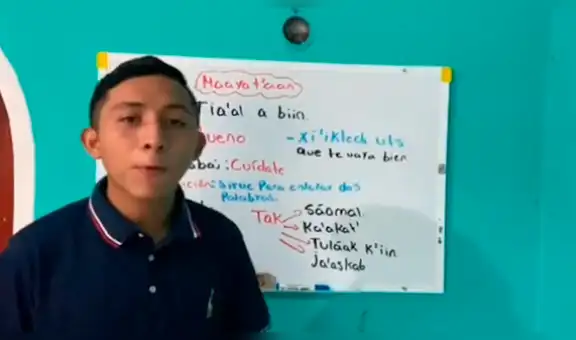 Maayat'aan
Tia'al a biin
ueno - Xi'iktech uts
que te vaya bien
: Cuídate
Sirve Para enlazar dos
Palabras.
Tak Sáamal
Ka'aka't
Tuláak k'iin
Ja'askab